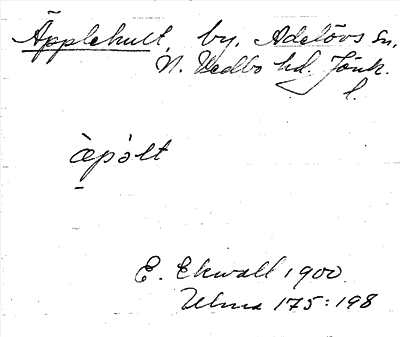 Äpplehult, by, Adelövs sn,
N. Vedbo hd. Jönk.
l.
æ̀pə̀lt
E. Ekwall 1900.
Ulma 175:198